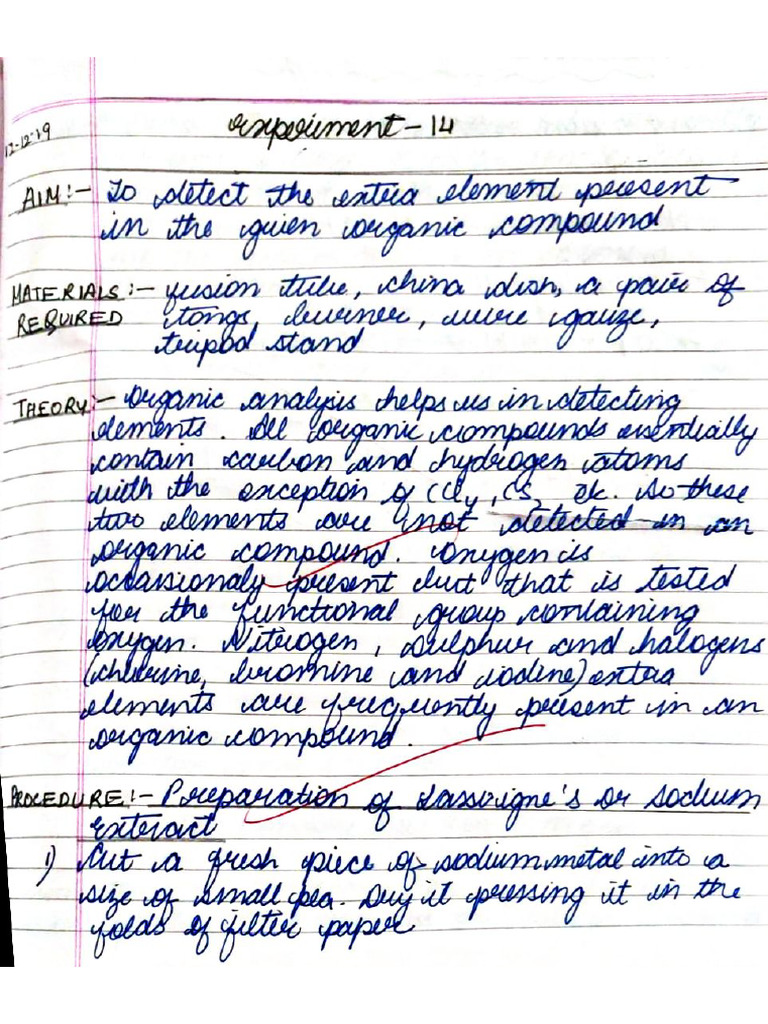 12-12-19
Experiment - 14
AIM:- To detect the extra element present
in the given organic compound
MATERIALS:- fusion tube, china dish, a pair of
REQUIRED tongs, burner, wire gauze,
tripod stand
THEORY:- Organic analysis helps us in detecting
elements. All organic compounds essentially
contain carbon and hydrogen atoms
with the exception of CCl4, CS2 etc. So these
two elements are not detected in an
organic compound. Oxygen is
occassionaly present but that is tested
for the functional group containing
oxygen. Nitrogen, sulphur and halogens
(chlorine, bromine and iodine) extra
elements are frequently present in an
organic compound.
PROCEDURE:- Preparation of Lassaigne's or sodium
extract
1) Cut a fresh piece of sodium metal into a
size of small pea. Dry it pressing it in the
folds of filter paper